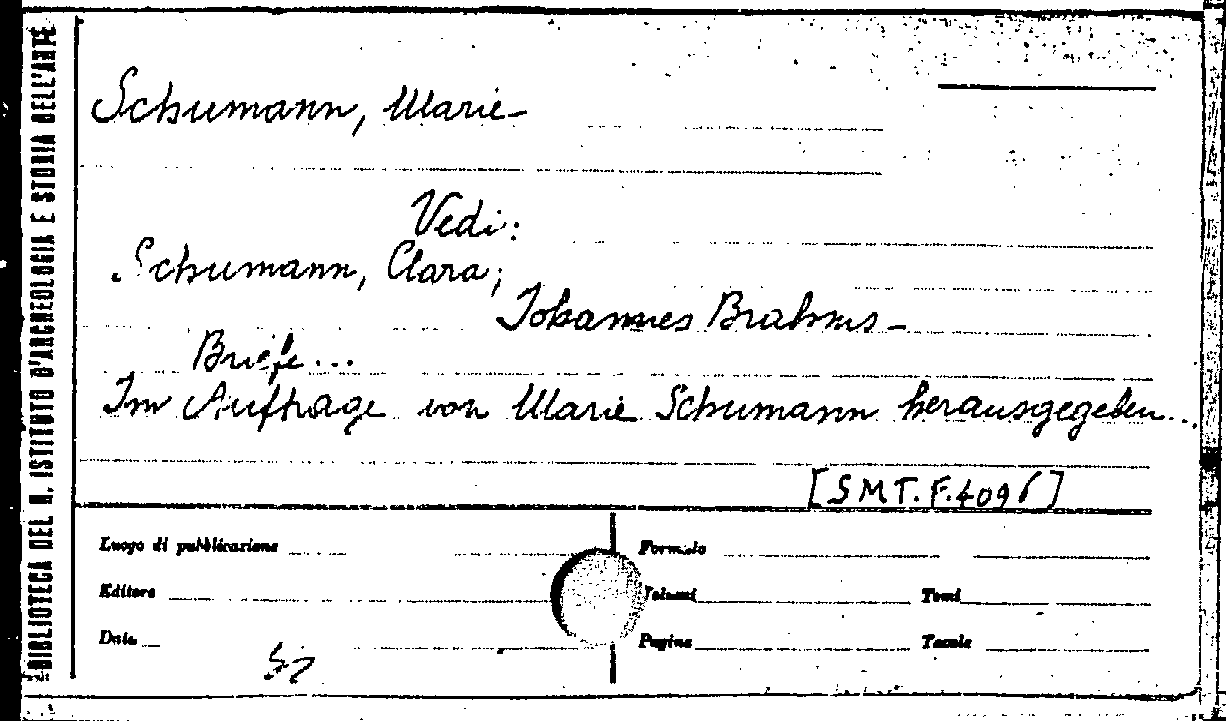 BIBLIOTECA DEL R. ISTITUTO D'ARCHEOLOGIA E STORIA DELL'ARTE
Schumann, Marie-
Vedi:
Schumann, Clara;
Johannes Brahms-
Briefe...
Im Auftrage von Marie Schumann herausgegeben...
[SMT.F.4096]
Luogo di pubblicazione
Formato
Editore
Volumi
Tomi
Data
Pagine
Tavole